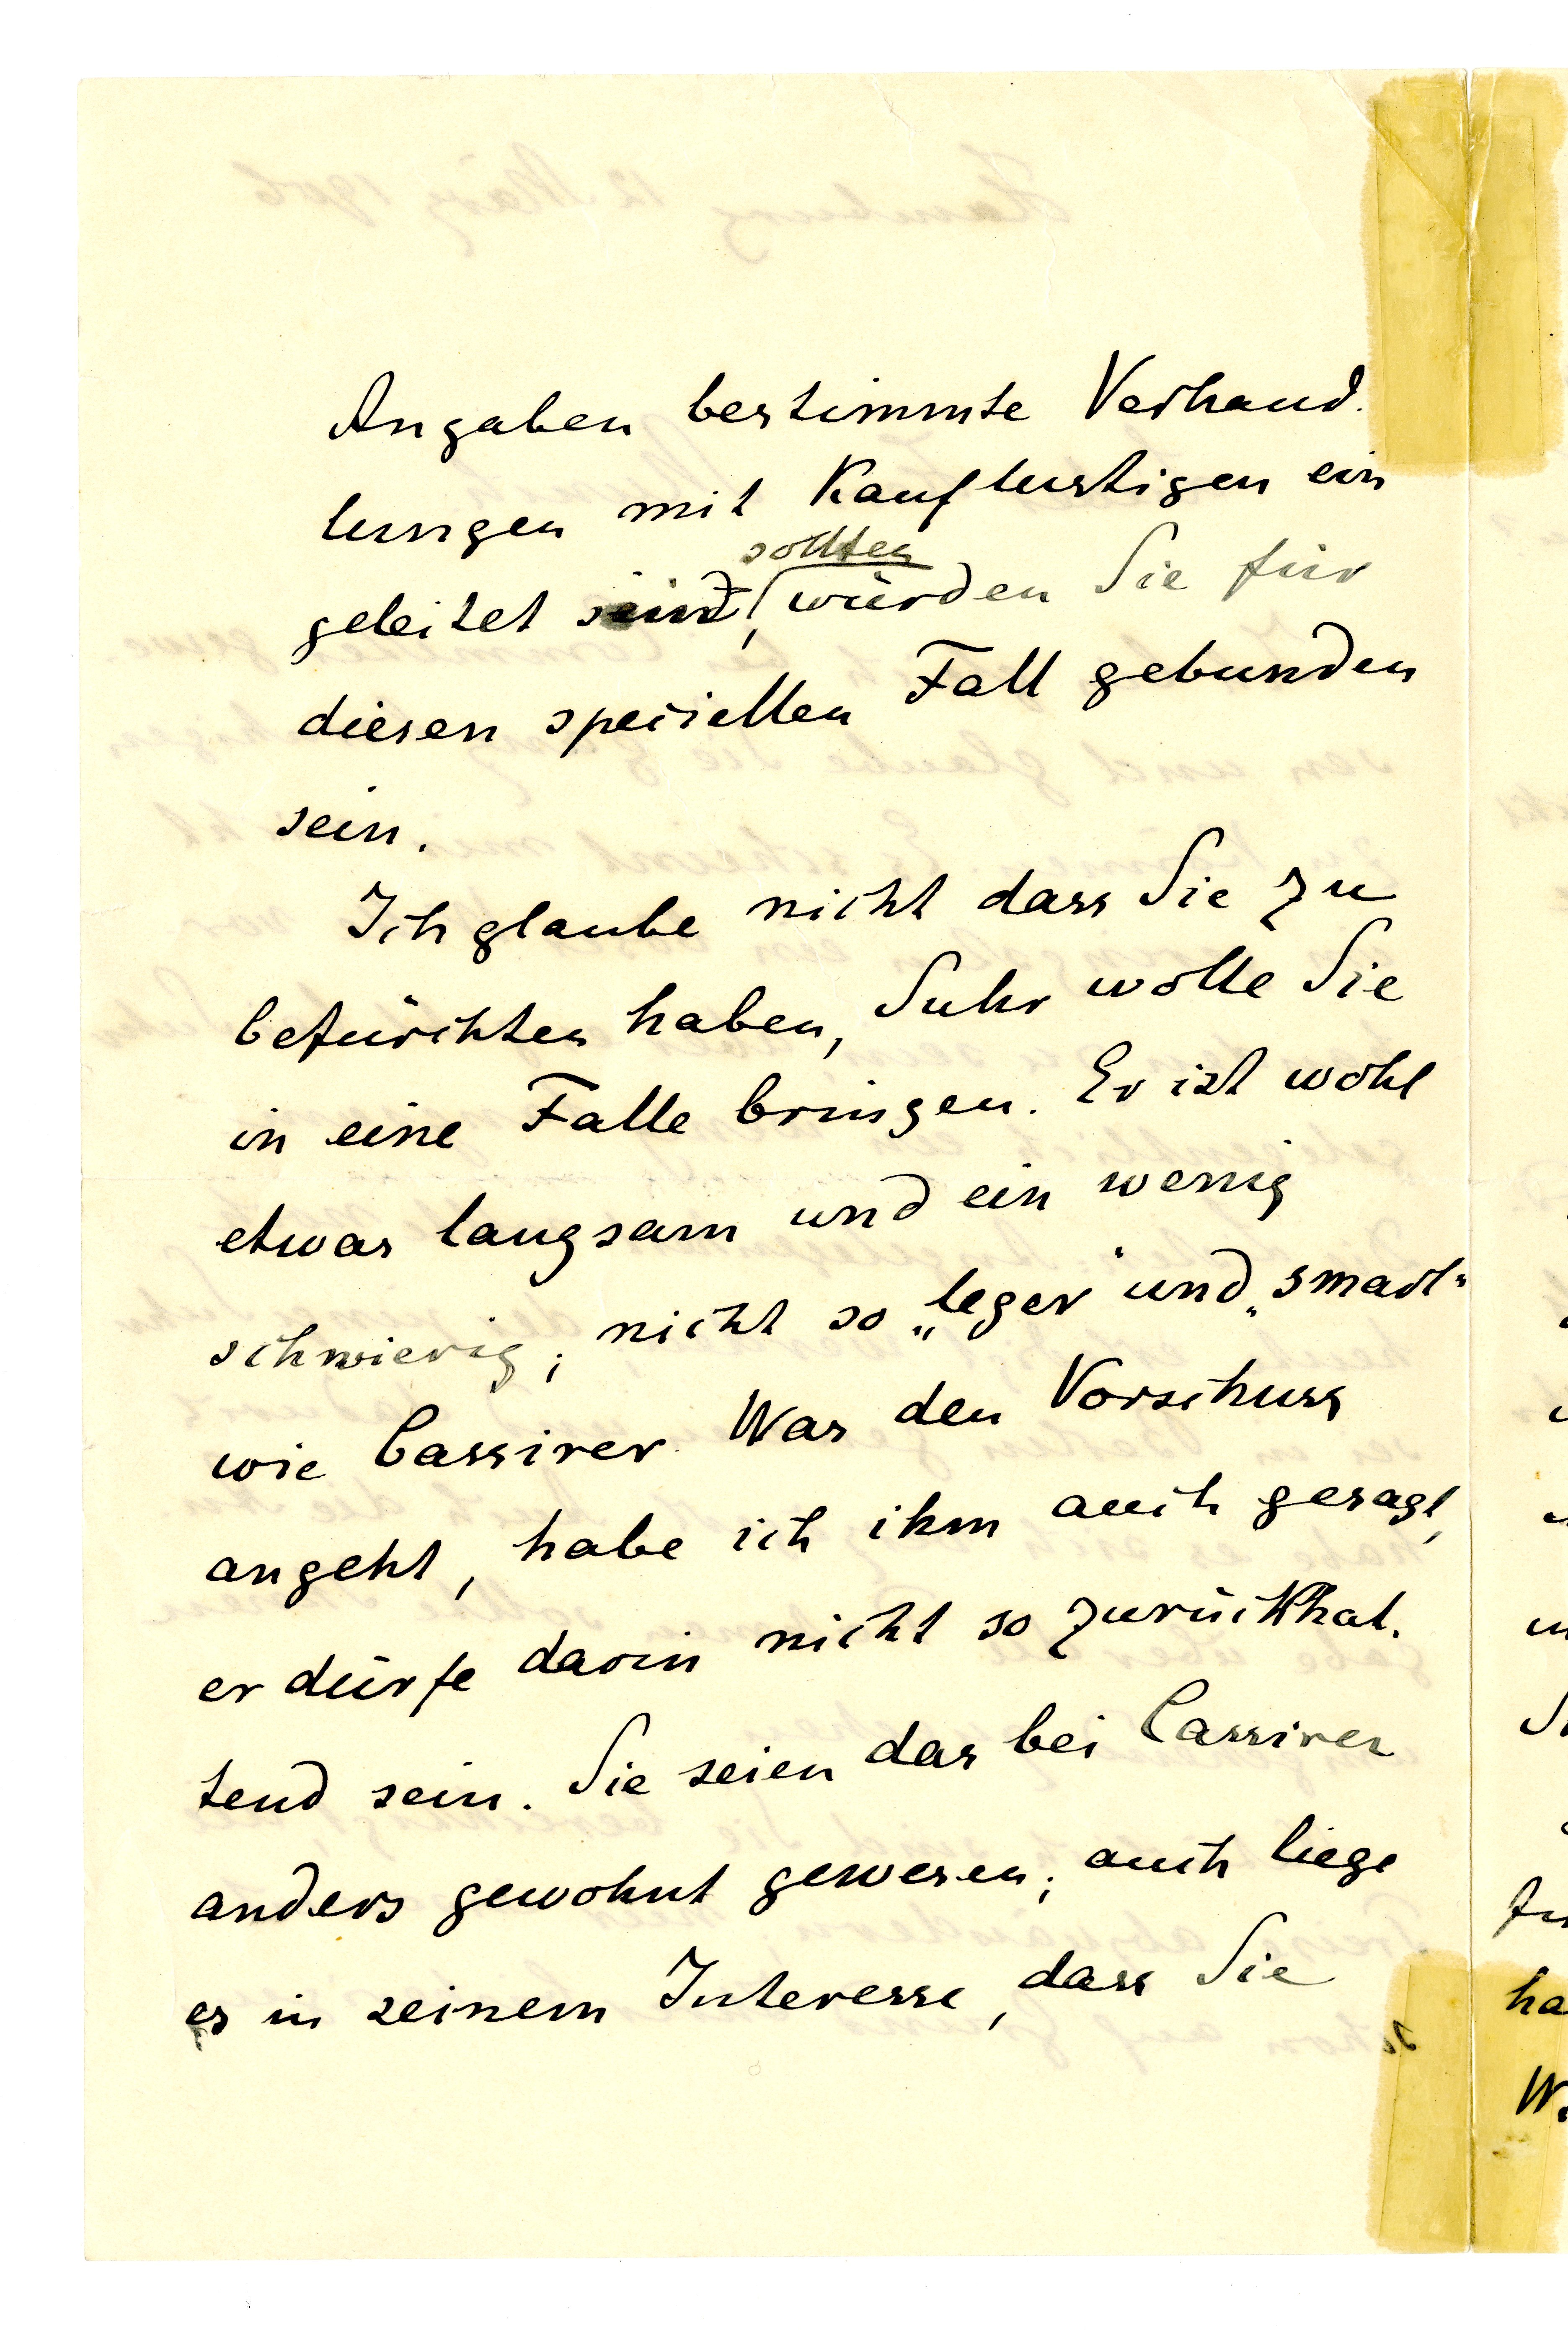 Angaben bestimmte Verhand-
lungen mit Kauflustigen ein
sollten
geleitet sein, würden Sie für
diesen speciellen Fall gebunden
sein.
Ich glaube nicht dass Sie zu
befürchten haben, Suhr wolle Sie
in eine Falle bringen. Er ist wohl
etwas langsam und ein wenig
schwierig; nicht so „leger" und „smart"
wie Cassirer. Was den Vorschuss
angeht, habe ich ihm auch gesagt,
er dürfe darin nicht so zurückhal-
tend sein. Sie seien das bei Cassirer
anders gewohnt gewesen; auch liege
es in seinem Interesse, dass Sie